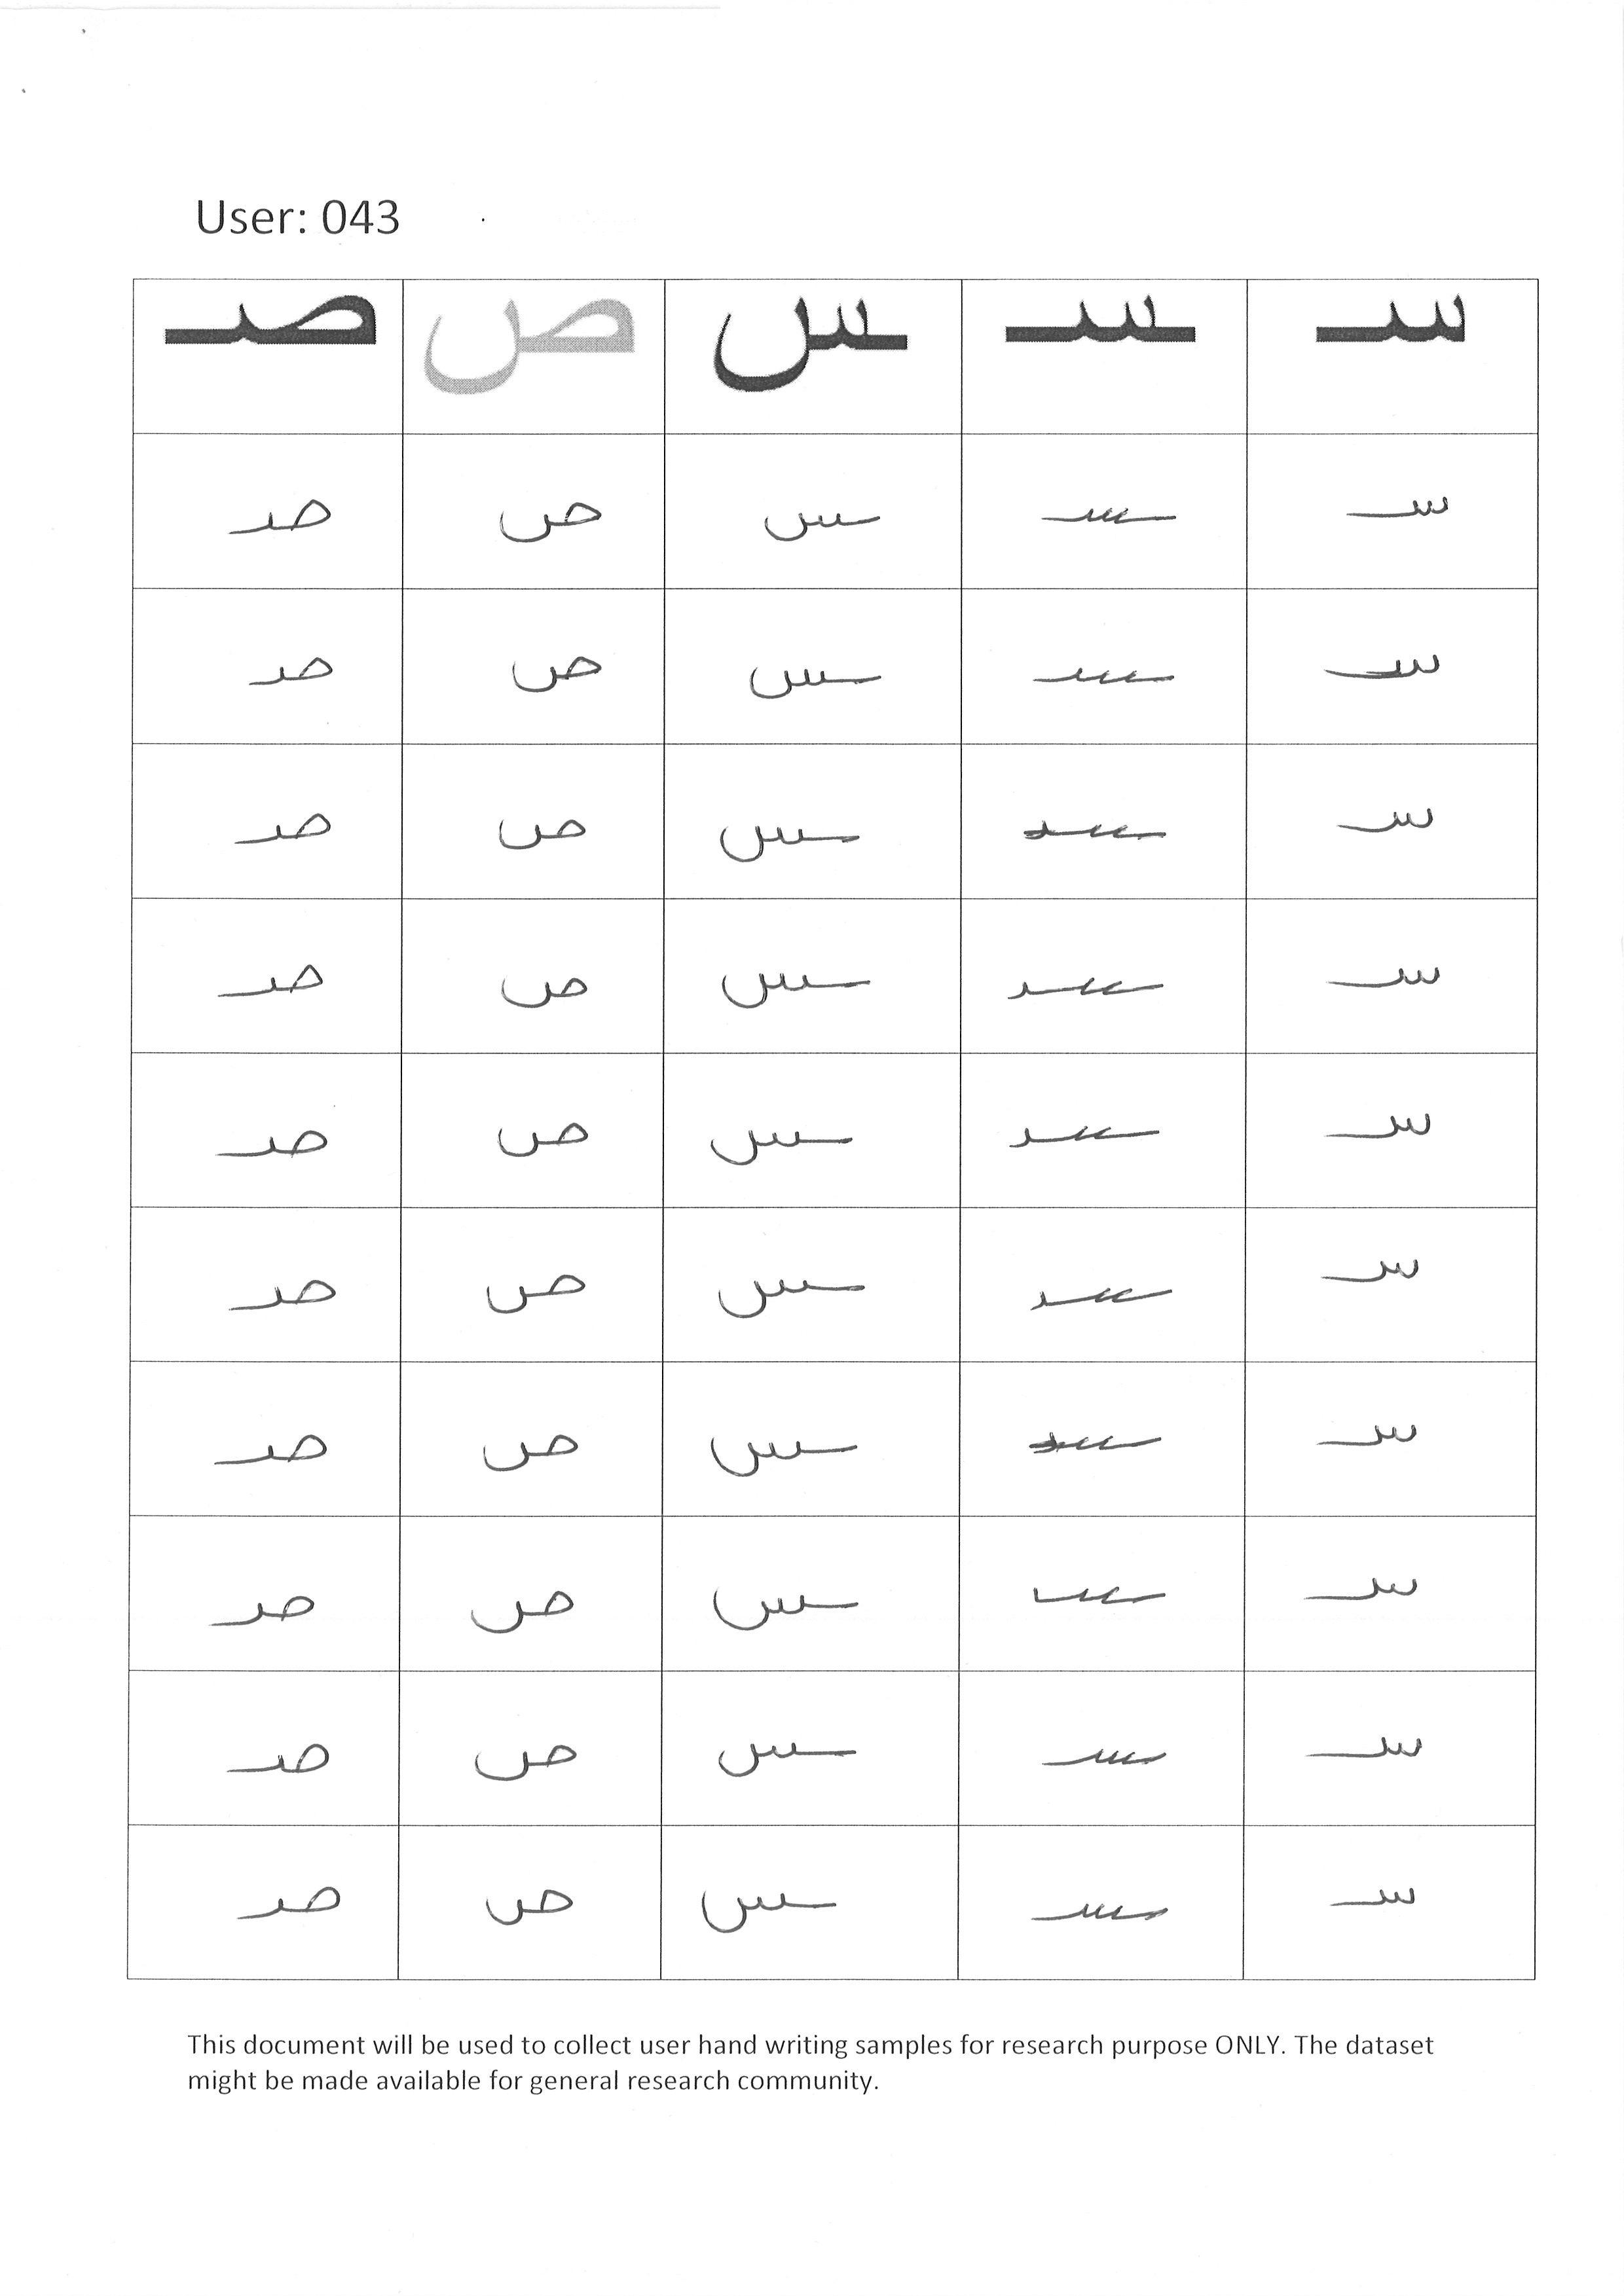 User: 043
سـ ـسـ ـس ص صـ
سـ ـسـ ـس ص صـ
سـ ـسـ ـس ص صـ
سـ ـسـ ـس ص صـ
سـ ـسـ ـس ص صـ
سـ ـسـ ـس ص صـ
سـ ـسـ ـس ص صـ
سـ ـسـ ـس ص صـ
سـ ـسـ ـس ص صـ
سـ ـسـ ـس ص صـ
سـ ـسـ ـس ص صـ
This document will be used to collect user hand writing samples for research purpose ONLY. The dataset
might be made available for general research community.